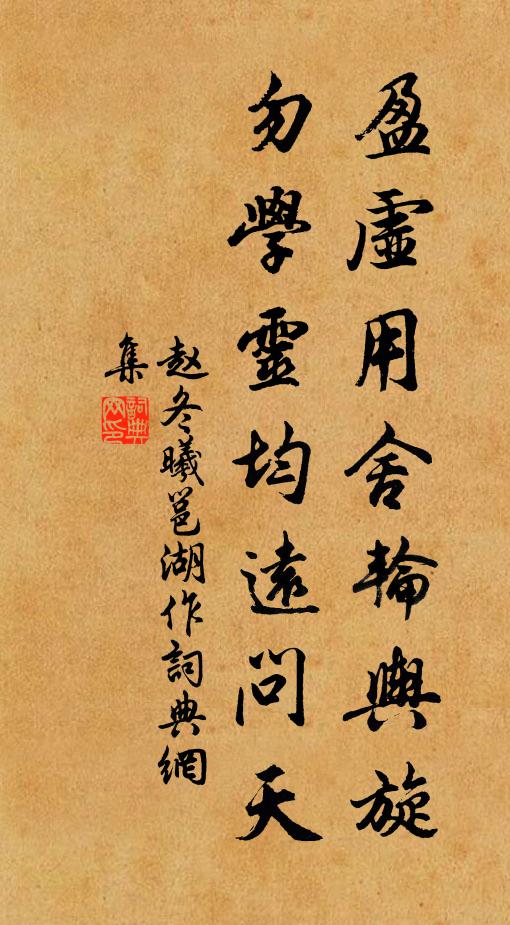 盈虛用舍輪輿旋
勿學靈均遠問天
赵冬曦邕湖作詞典網
集
詞典網印